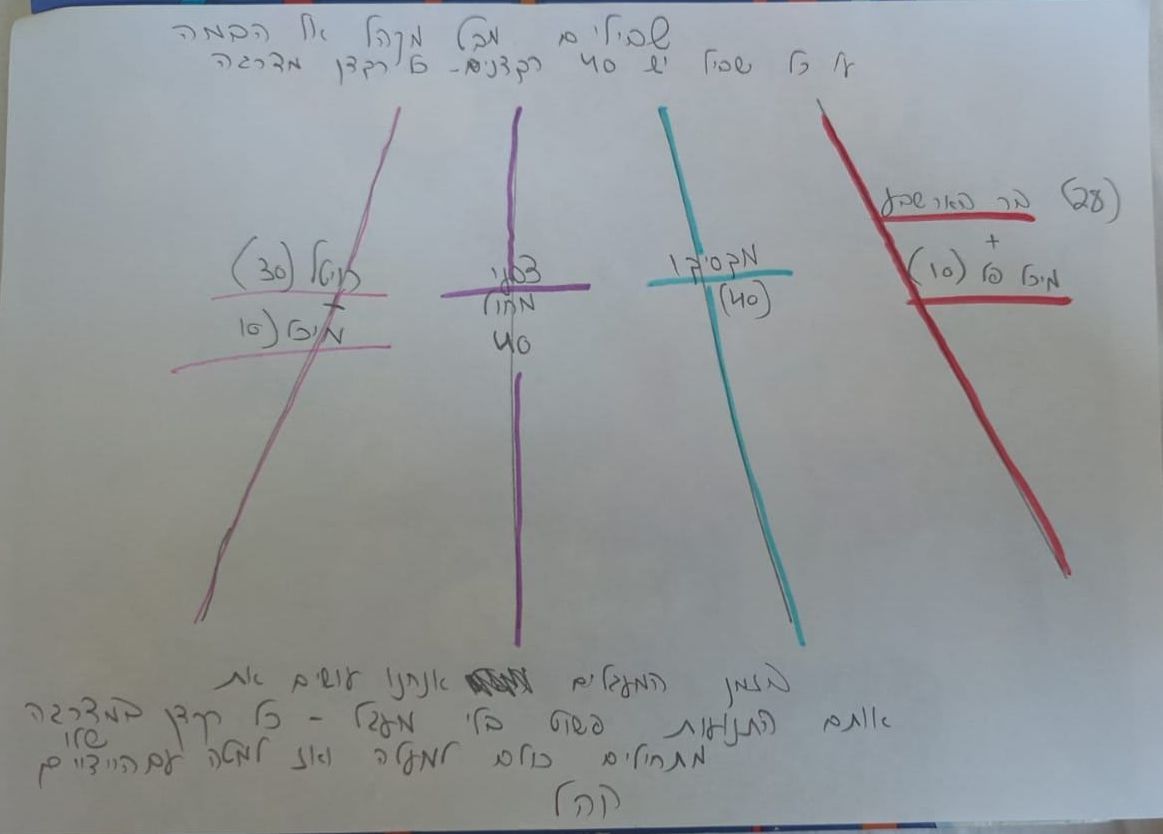 שבילים מבל מקהל אל הבמה
על כל שביל יש 40 רקדנים - כל רקדן מדרגה
בר באר שבע (28)
+
מיכל כל (10)
מקסיקו
(40)
צפני
מחול
40
(30)
+
מיכל (10
בזמן המעגלים אנחנו עושים את
אותם התנועות פשוט בלי מעגל - כל רקדן במדרגה
שלו
מתחילים כולם למעלה ואז למטה עם הויידויים
קהל